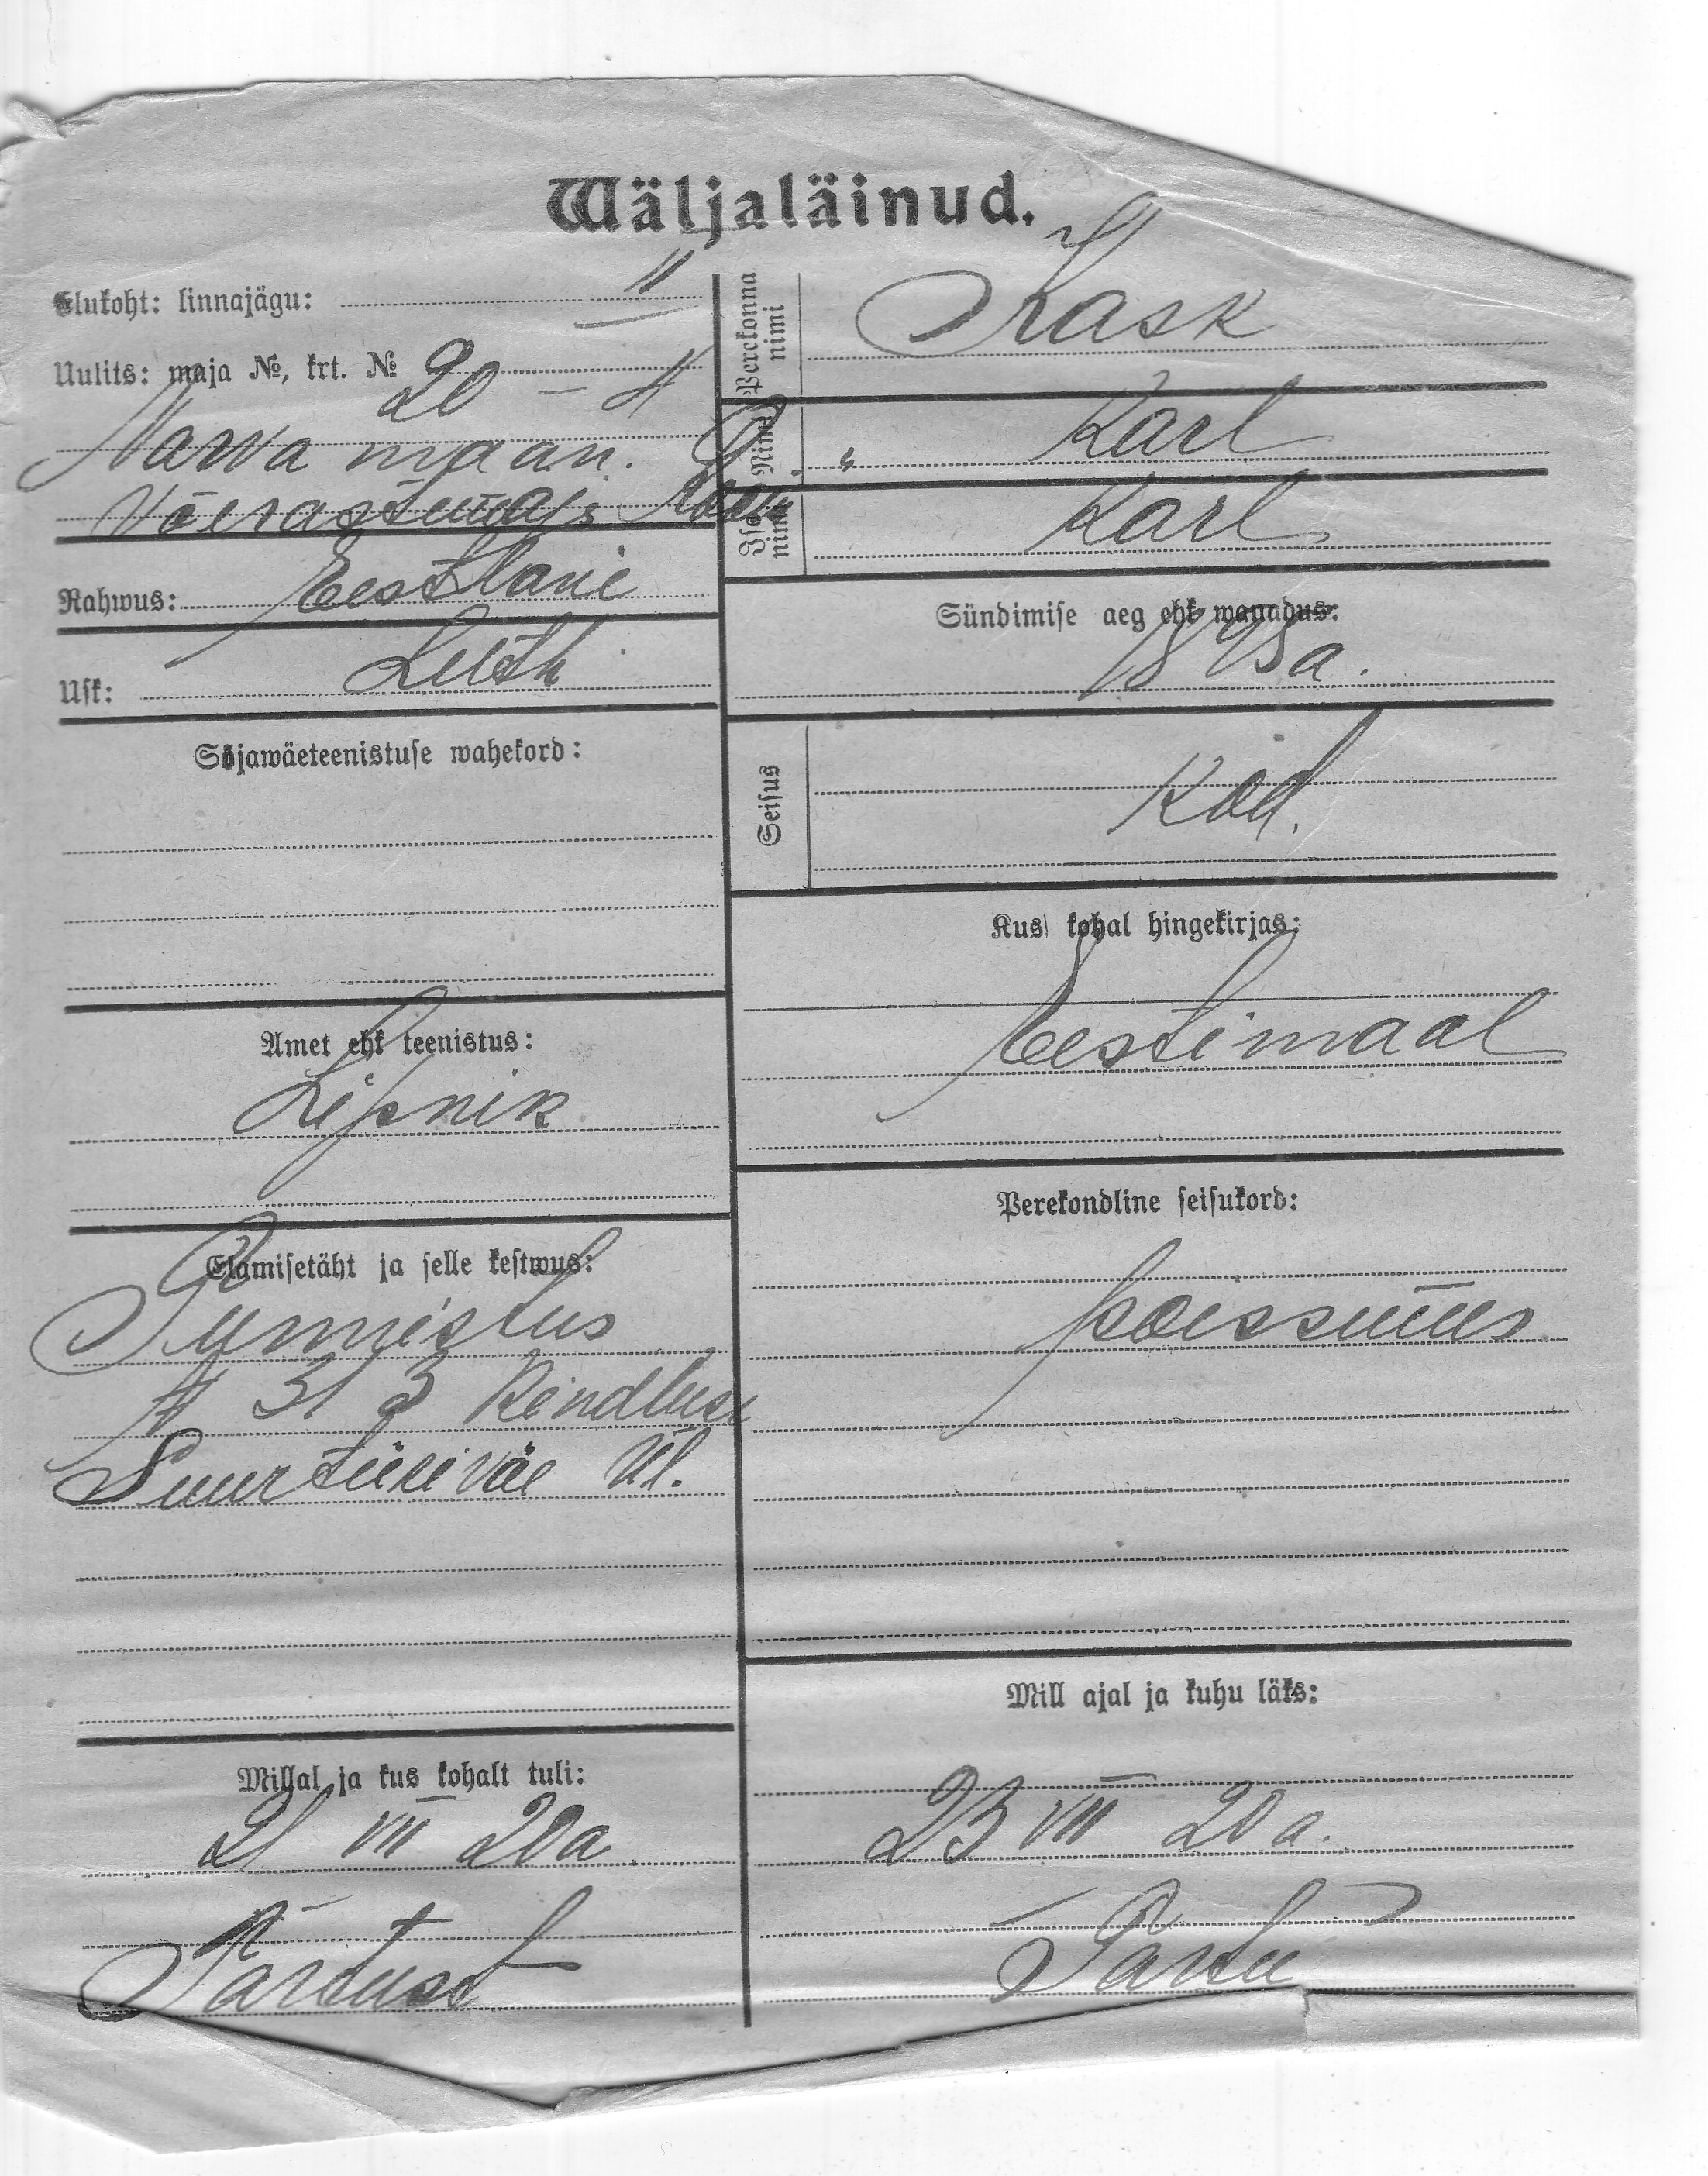 Wäljaläinud.
Elukoht: linnajägu: II
Uulits: maja №, krt. № 20 – 4
Narva maan.
Võerastemaja
Rahwus: Eestlane
Usk: Luth
Sõjawäeteenistuse wahekord:
Amet ehk teenistus:
Lipnik
Elamisetäht ja selle kestwus:
Tunnistus
№ 313 Kindluse
Suurtükiväe Ül.
Millal ja kus kohalt tuli:
21 VII 20 a
Tartust
Perekonna nimi Kask
Nimi Karl
Isa nimi Karl
Sündimise aeg ehk wanadus:
1895 a.
Seisus Kod.
Kus kohal hingekirjas:
Eestimaal
Perekondline seisukord:
poissmees
Mill ajal ja kuhu läks:
23 VII 20 a.
Tartu